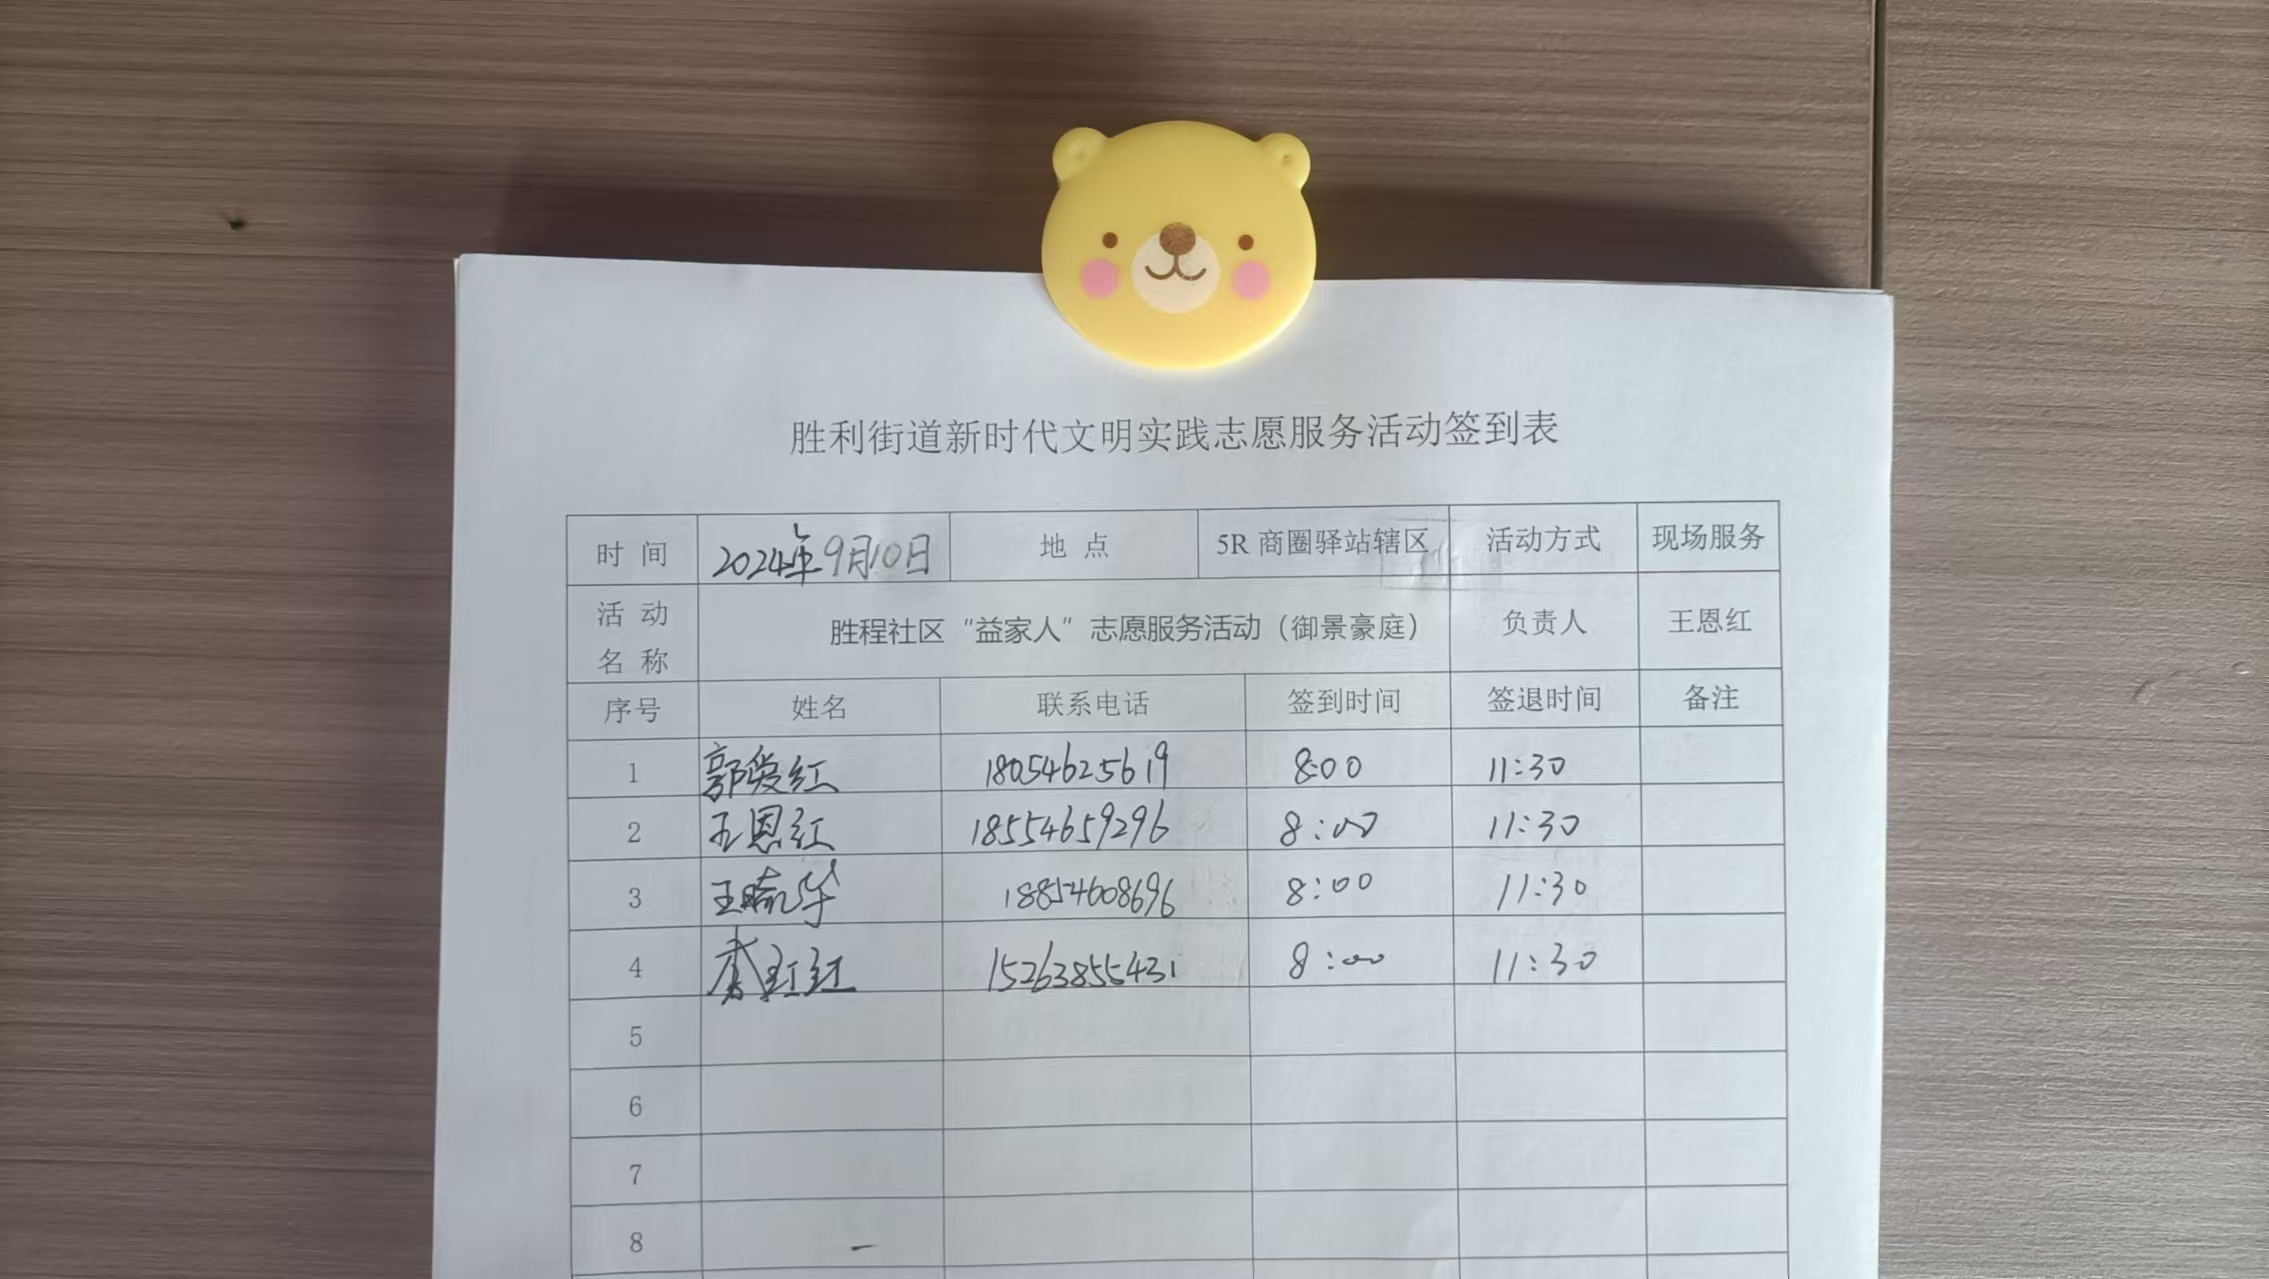 胜利街道新时代文明实践志愿服务活动签到表
时 间 2024年9月10日 地 点 5R 商圈驿站辖区 活动方式 现场服务
活 动
名 称 胜程社区“益家人”志愿服务活动（御景豪庭） 负责人 王恩红
序号 姓名 联系电话 签到时间 签退时间 备注
1 郭爱红 18054625619 8:00 11:30
2 王恩红 18554659296 8:00 11:30
3 18854608696 8:00 11:30
4 15263855431 8:00 11:30
5
6
7
8